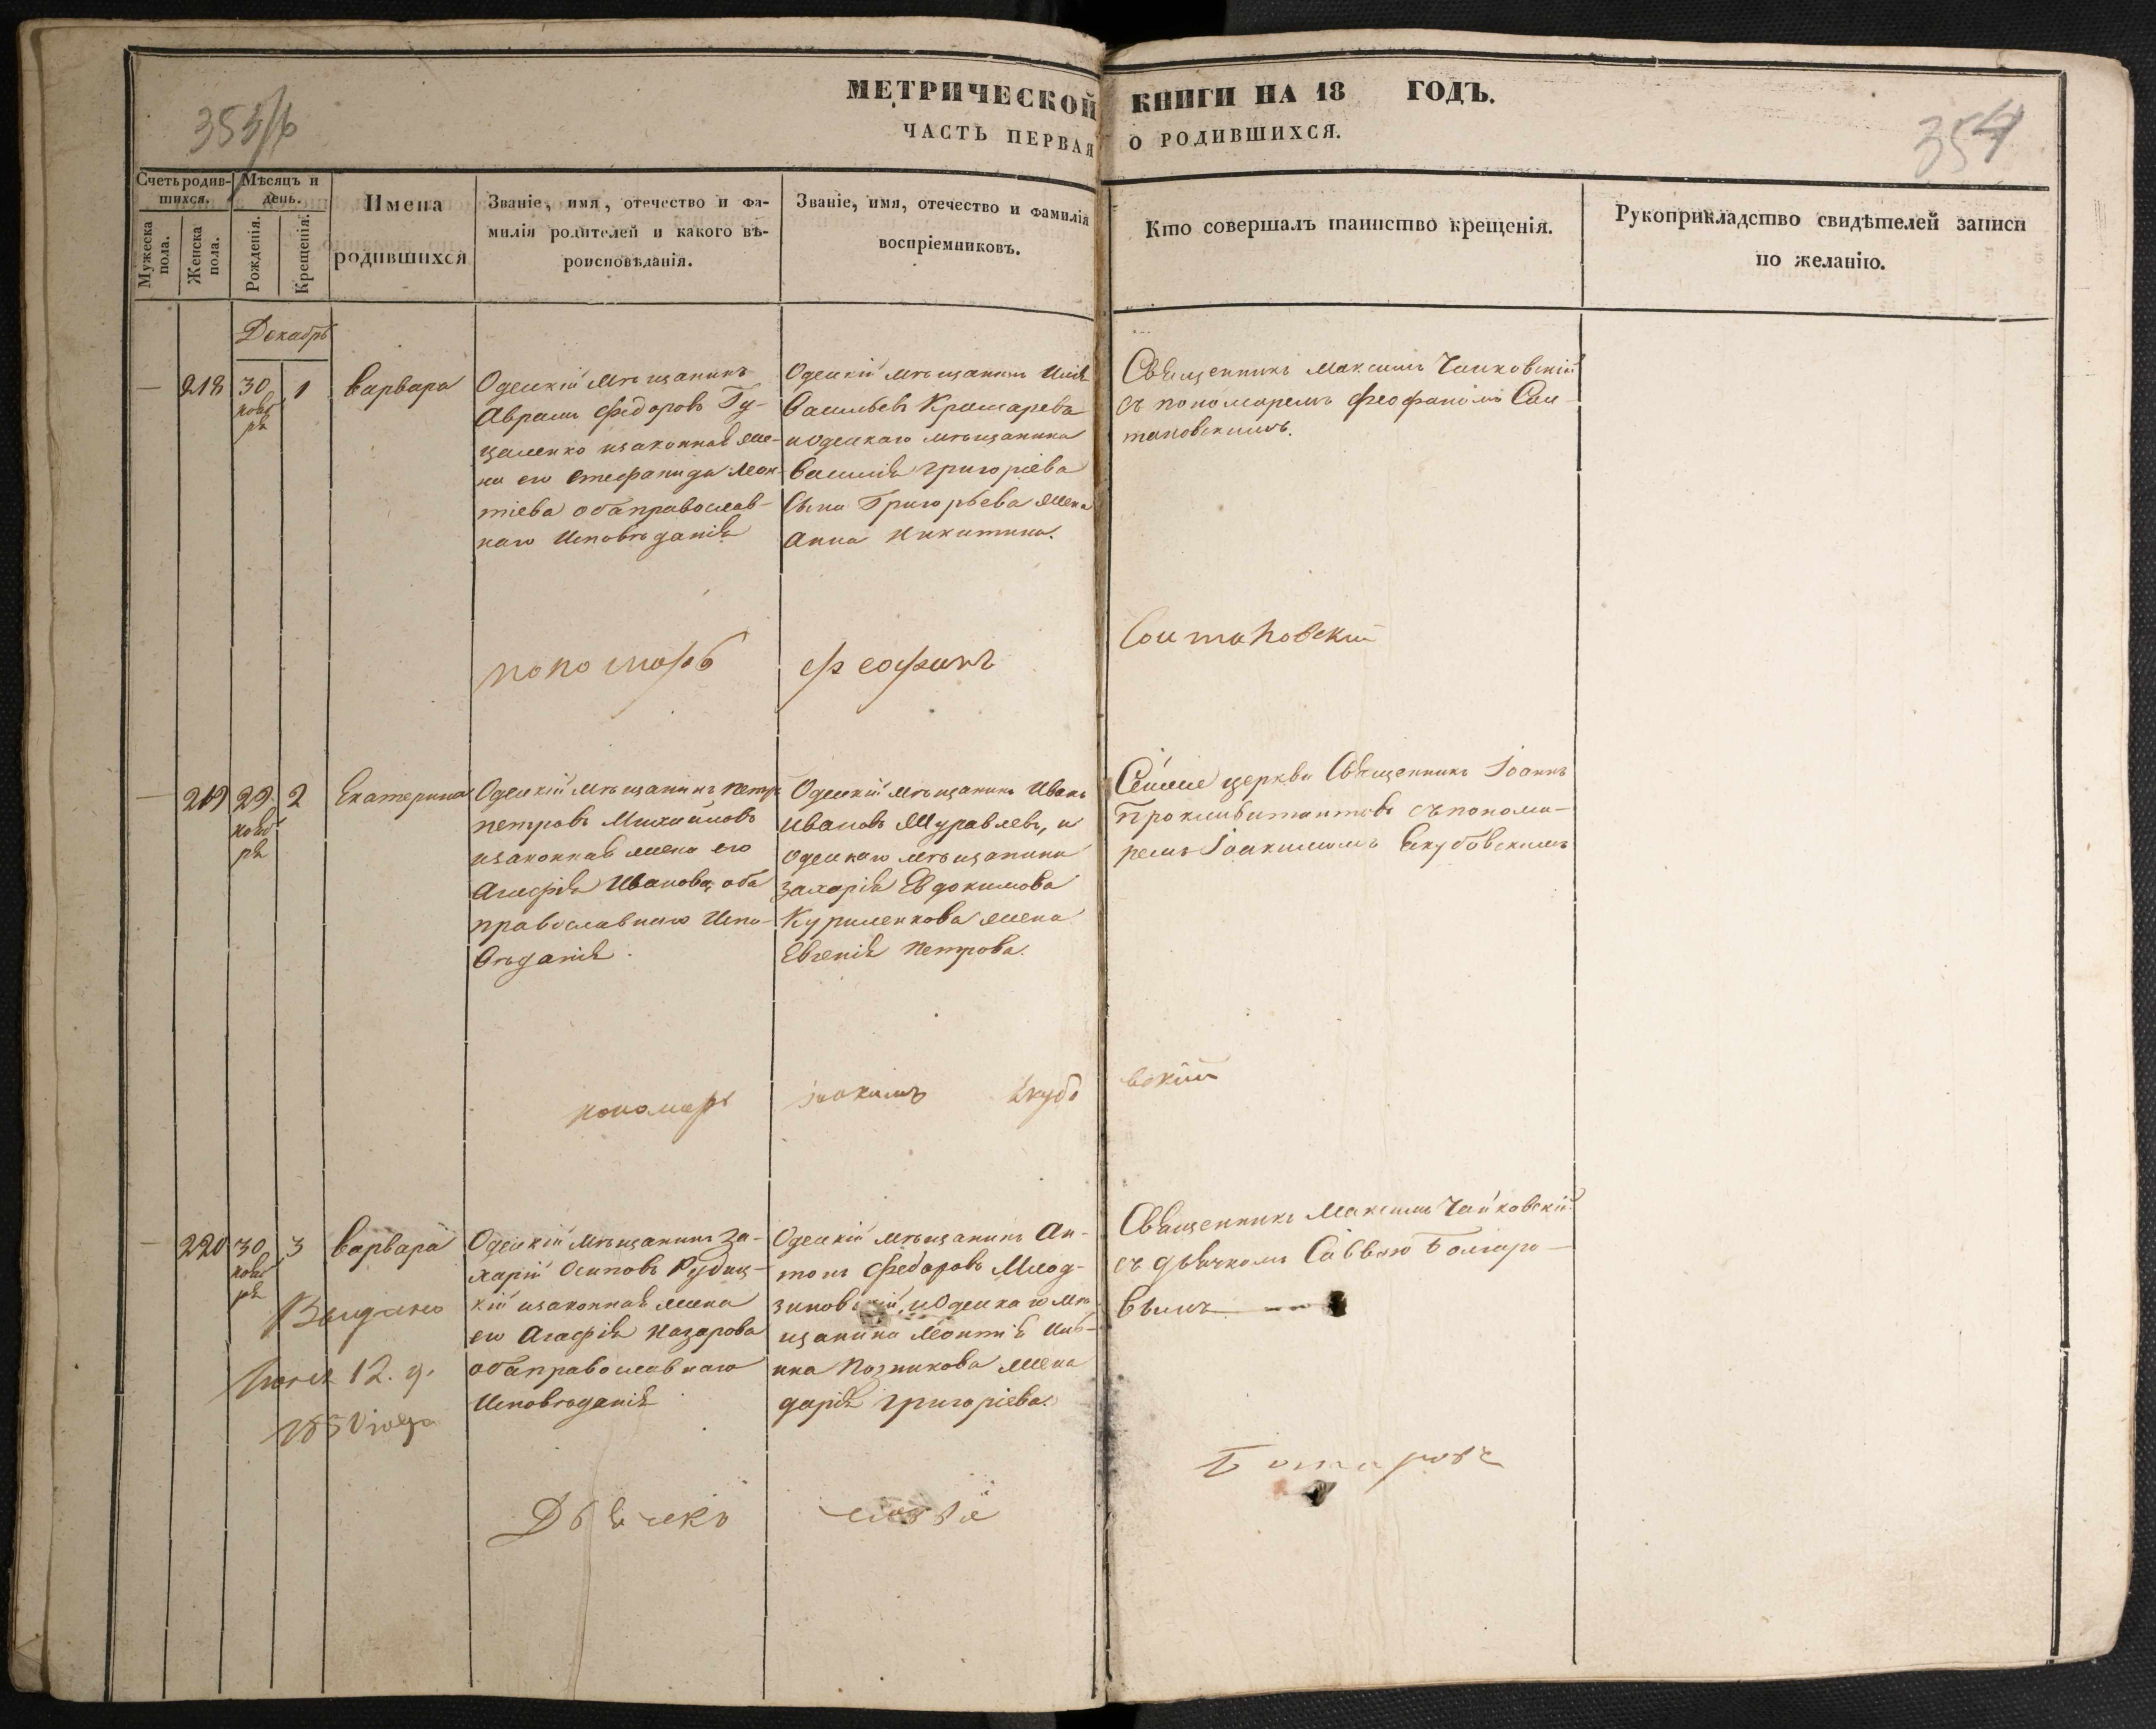 353/б
354
МЕТРИЧЕСКОЙ КНИГИ НА 18 ГОДЪ.
ЧАСТЬ ПЕРВАЯ О РОДИВШИХСЯ.
Счетъ родив-
шихся.
Мужеска
пола.
Женска
пола.
Мѣсяцъ и
день.
Рожденія.
Крещенія.
Имена
родившихся
Званіе, имя, отечество и фа-
милія родителей и какого вѣ-
роисповѣданія.
Званіе, имя, отечество и фамилія
воспріемниковъ.
Кто совершалъ таинство крещенія.
Рукоприкладство свидѣтелей записи
по желанію.
Декабрь
— 218 30 1 Варвара
нояб
ря
Одескій мѣщанинъ
Аврамъ Федоровъ Гу-
цаленко изаконная же-
на его Стефанида Леон-
тіева оба православ-
наго Исповѣданія
Одескій мѣщанинъ Илія
Васильевъ Крамарева
иодескаго мѣщанина
Василія Григоріева
сына Григорьева жена
Анна Никитина.
Священникъ Максимъ Чайковскій
съ пономаремъ Феофаномъ Сои-
тановскимъ.
пономарь Феофанъ Соитановскій
— 219 29 2 Екатерина
нояб
ря
Одескій мѣщанинъ Петръ
Петровъ Михайловъ
изаконная жена его
Агафія Иванова, оба
православнаго Испо-
вѣданія.
Одескій мѣщанинъ Иванъ
Ивановъ Журавлевъ, и
одескаго мѣщанина
Захарія Евдокимова
Куриленкова жена
Евгенія Петрова.
церкви Священникъ Іоаннъ
съпонома-
ремъ Іоакимомъ Якубовскимъ
пономарь Іоакимъ Якубовскій
— 220 30 3 Варвара
нояб
ря
Выдано
12. д.
года
Одескій мѣщанинъ За-
харій Осиповъ Рудиц-
кій изаконная жена
его Агафія Назарова
оба православнаго
Исповѣданія
Одескій мѣщанинъ Ан-
тонъ Федоровъ Млод-
зиновскій, иОдескаго мѣ-
щанина Леонтія
Позникова жена
Дарія Григоріева.
Священникъ Максимъ Чайковскій
съ дьячкомъ Саввою Болгаро-
вымъ
Дьячекъ